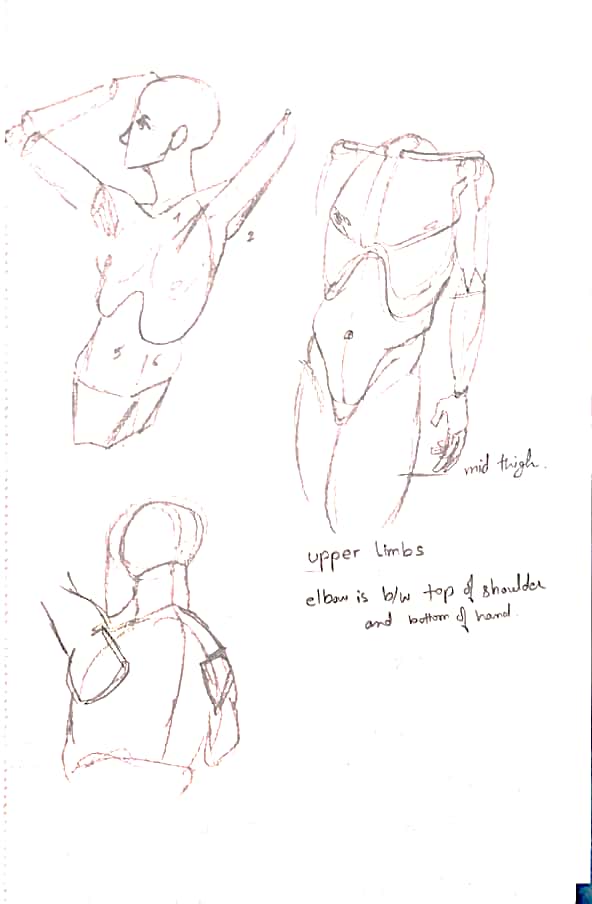 1
2
5 6
mid thigh.
upper limbs
elbow is b/w top of shoulder
and bottom of hand.